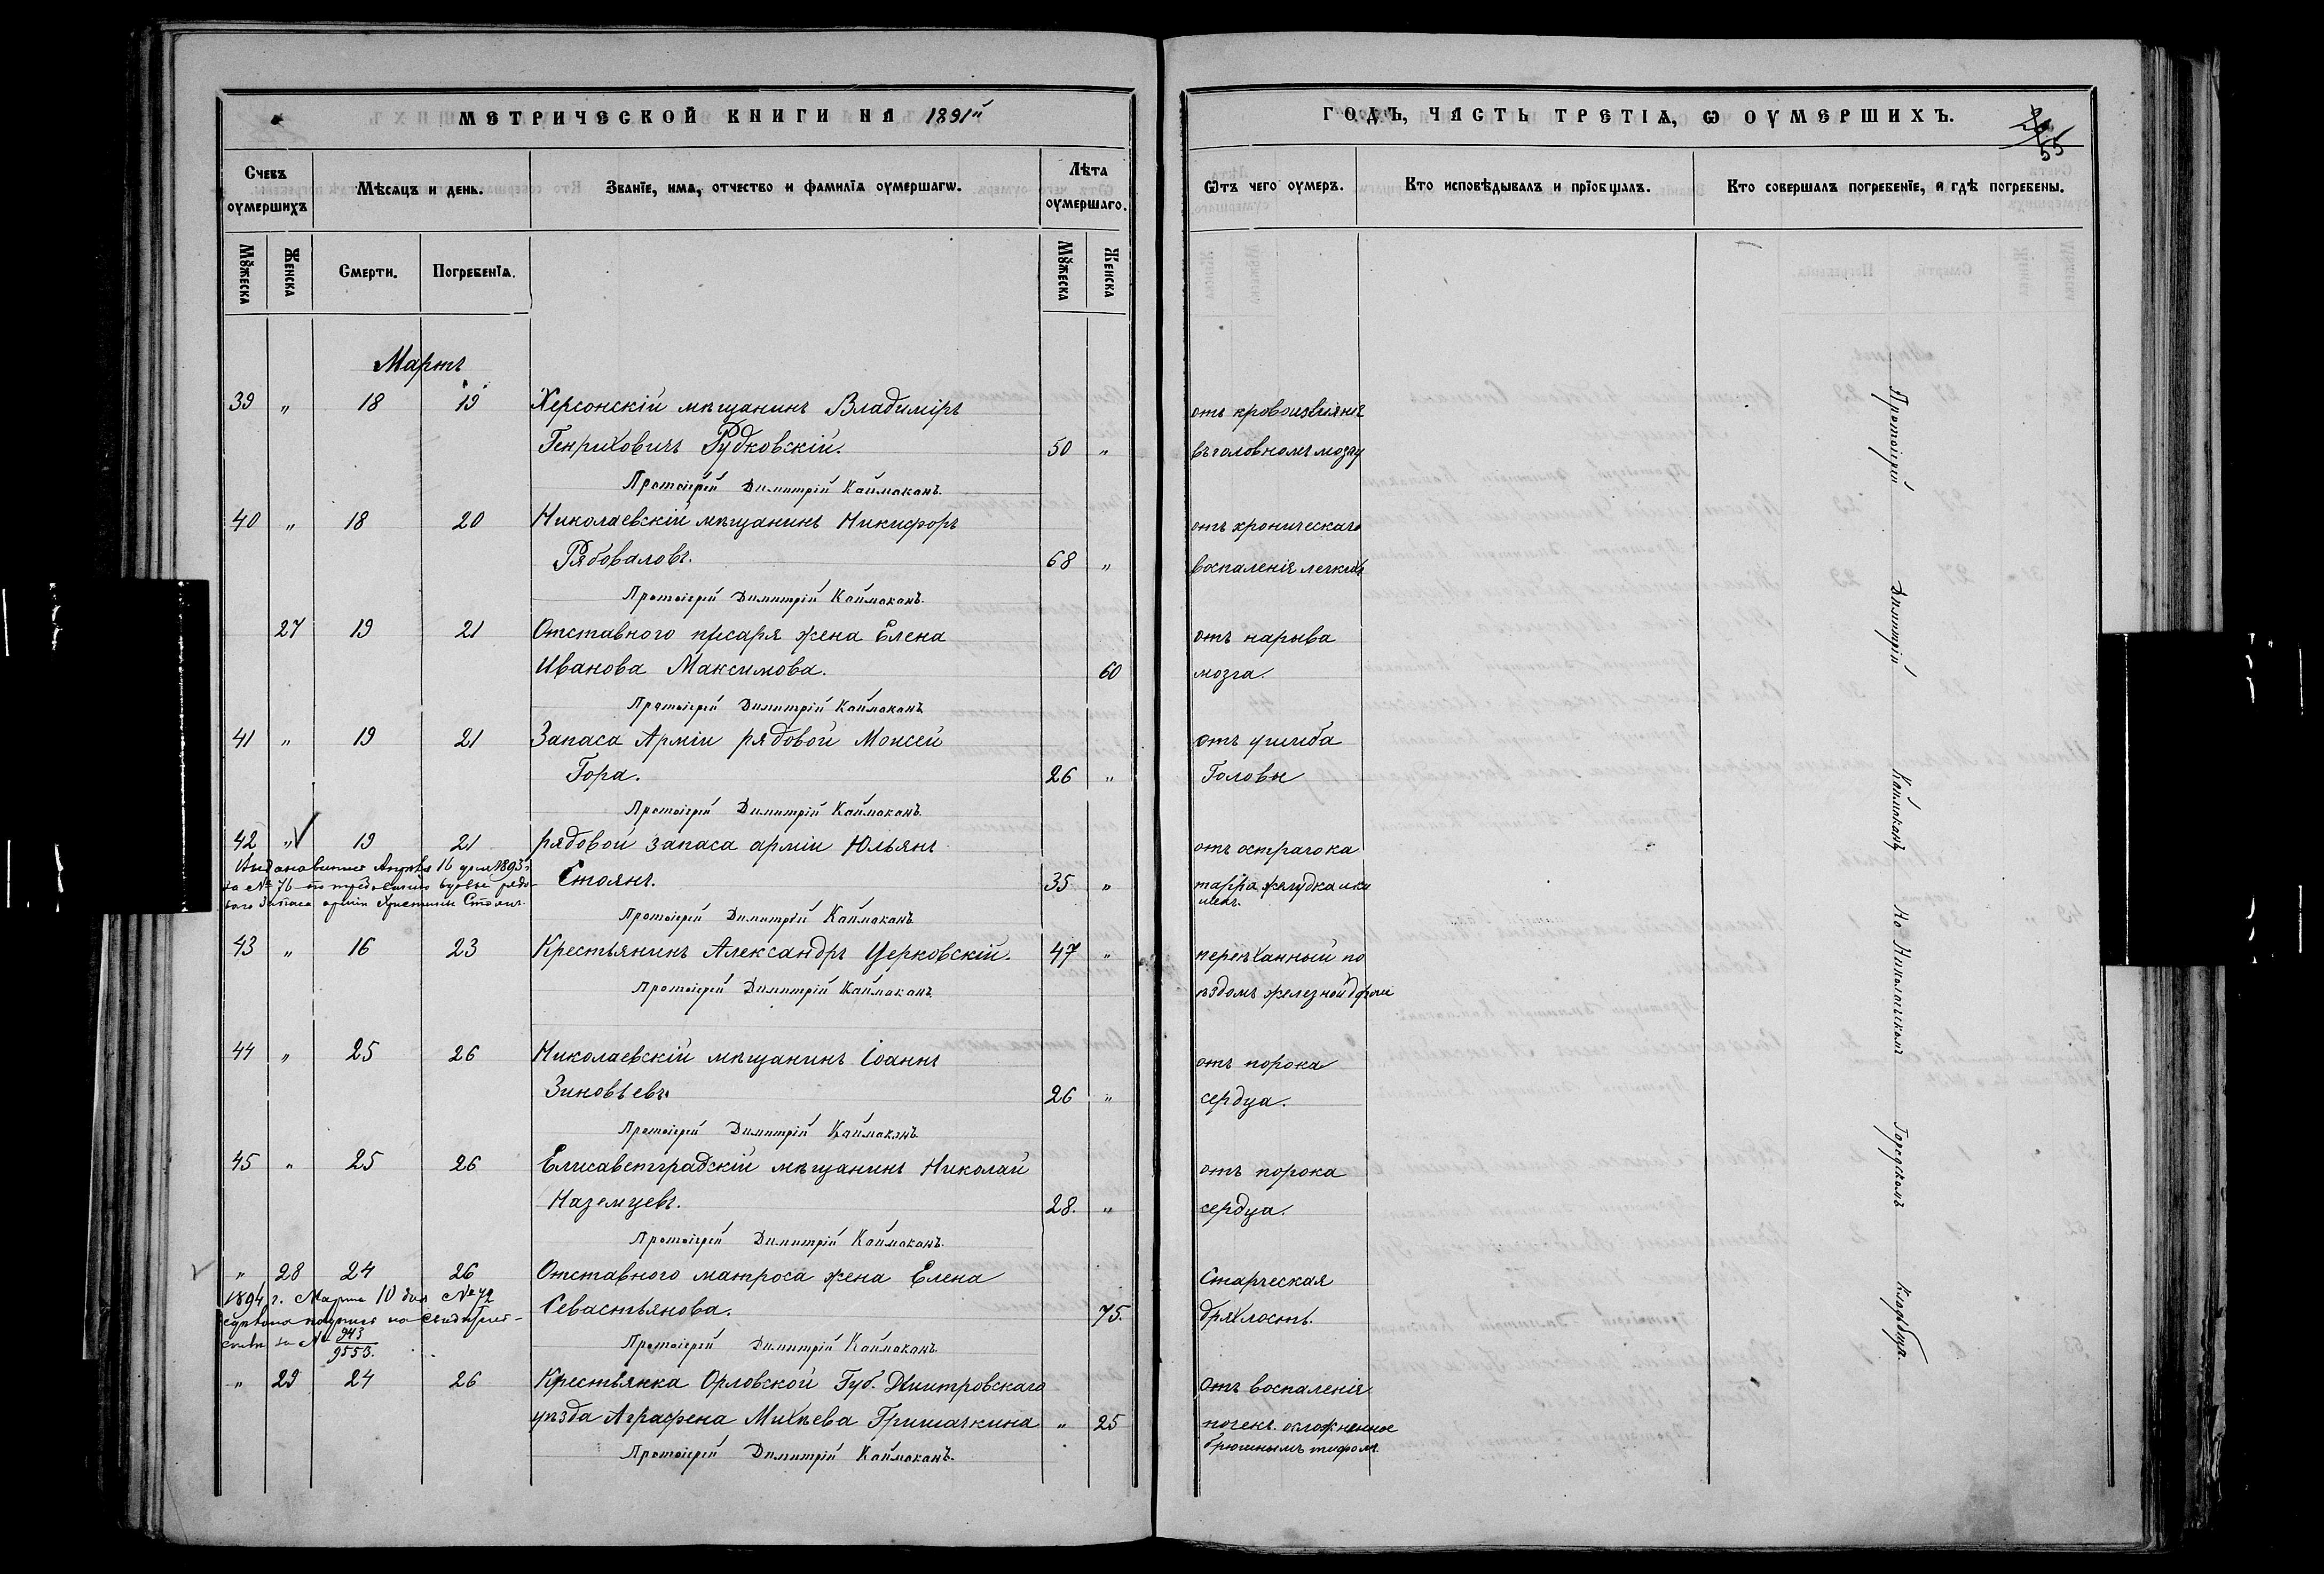 МЕТРИЧЕСКОЙ КНИГИ НА 1891й
Счевъ оумершихъ
Мѣсяцъ и день.
Званїе, имя, отчество и фамилїя оумершагѡ.
Лѣта оумершаго.
Мꙋжеска
Женска
Смерти.
Погребенїя.
Мꙋжеска
Женска
Мартъ
39 " 18 19 Херсонскій мѣщанинъ Владиміръ
Генриховичъ Рудковскій. 50 "
Протоіерей Димитрій Каймаканъ.
40 " 18 20 Николаевскій мѣщанинъ Никифоръ
Рябоваловъ. 68 "
Протоіерей Димитрій Каймаканъ.
27 19 21 Отставного писаря жена Елена
Иванова Максимова. 60
Протоіерей Димитрій Каймаканъ
41 " 19 21 Запаса Арміи рядовой Моисей
Гора. 26 "
Протоіерей Димитрій Каймаканъ.
42 " 19 21 рядовой запаса арміи Юльянъ
16 1893 г
за № 76 вдовы рядо-
вого Запаса арміи Христины Стоянъ.
Стоянъ. 35 "
Протоіерей Димитрій Каймаканъ
43 " 16 23 Крестьянинъ Александръ Церковскій. 47 "
Протоіерей Димитрій Каймаканъ
44 " 25 26 Николаевскій мѣщанинъ Іоаннъ
Зиновьевъ. 26 "
Протоіерей Димитрій Каймаканъ
45 " 25 26 Елисаветградскій мѣщанинъ Николай
Наземцевъ. 28. "
Протоіерей Димитрій Каймаканъ.
" 28 24 26 Отставного матроса жена Елена
1894 г. Марта 10 дня № 72
сдѣлана надпись на свидѣтель-
ствѣ за № 943
9553.
Севастьянова. 75.
Протоіерей Димитрій Каймаканъ
" 29 24 26 Крестьянка Орловской Губ. Дмитровскаго
уѣзда Аграфена Михѣева Гришачкина " 25
Протоіерей Димитрій Каймаканъ.
ГОДЪ, ЧАСТЬ ТРЕТІЯ, Ѡ ОУМЕРШИХЪ.
55
Ѿтъ чего оумеръ.
Кто исповѣдывалъ и прїобщалъ.
Кто совершалъ погребенїе, и гдѣ погребены.
отъ кровоизліянія
въ головномъ мозгу
отъ хроническаго
воспаленія легкихъ
отъ нарыва
мозга.
отъ ушиба
Головы
отъ остраго ка
тарра желудка и ки
шекъ.
переѣханный по
ѣздомъ железной дороги
отъ порока
сердца.
отъ порока
сердца.
Старческая
дряхлость.
Отъ воспаленія
почекъ осложненное
брюшнымъ тифомъ.
Протоіерей Димитрій Каймаканъ На Николаевскомъ Городскомъ Кладбищѣ.